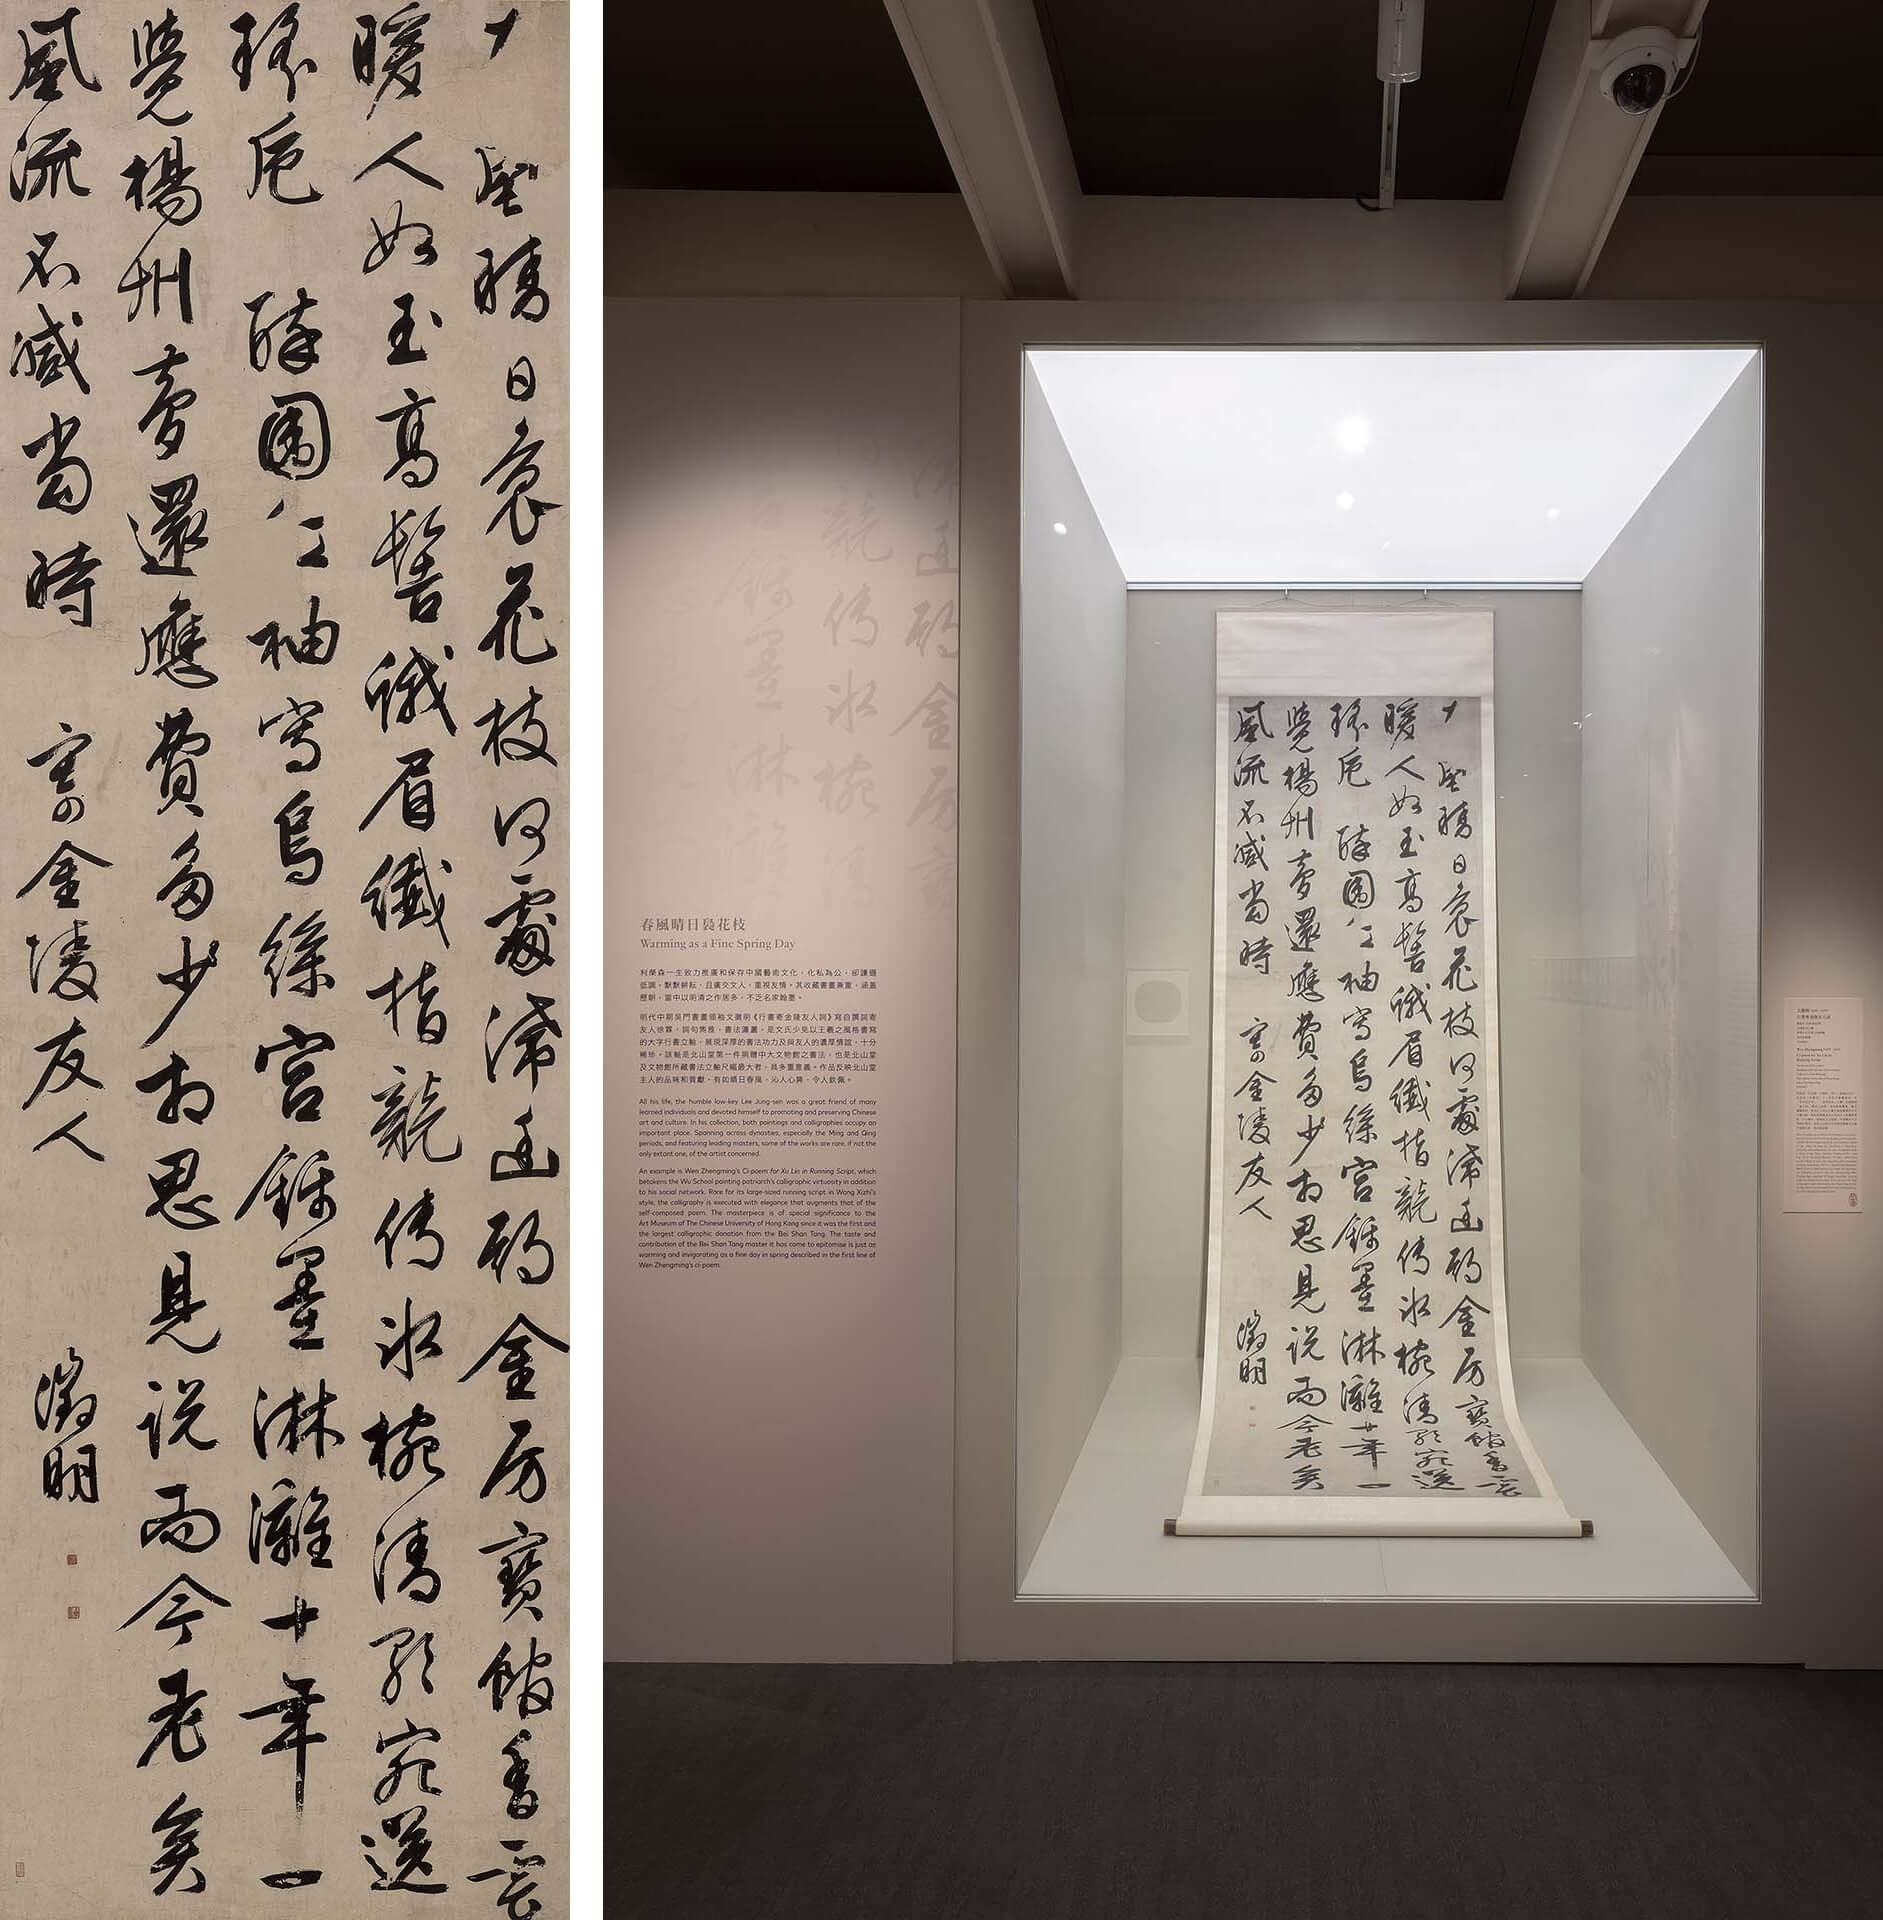 風晴日裊花枝何處滯幽期金房寶餙香雲
暖人如玉髙髻蛾眉纖指龍傳冰椀清歌宛送
瑤卮醉圍紅袖寫烏絲宮錦墨淋灕十年一
覺楊州夢還應費多少相思見說而今老矣
風流不減當時 寄金陵友人 徵明
春風晴日裊花枝
Warming as a Fine Spring Day
利榮森一生致力推廣和保存中國藝術文化，化私為公，卻謙遜
低調，默默耕耘，且廣交文人，重視友情。其收藏書畫兼重，涵蓋
歷朝，當中以明清之作居多，不乏名家翰墨。
明代中期吳門書畫領袖文徵明《行書寄金陵友人詞》寫自撰詞寄
友人徐霖，詞句雋雅，書法瀟灑，是文氏少見以王羲之風格書寫
的大字行書立軸，展現深厚的書法功力及與友人的濃厚情誼，十分
稀珍。該軸是北山堂第一件捐贈中大文物館之書法，也是北山堂
及文物館所藏書法立軸尺幅最大者，具多重意義。作品反映北山堂
主人的品味和貢獻，有如晴日春風，沁人心脾，令人欽佩。
All his life, the humble low-key Lee Jung-sen was a great friend of many
learned individuals and devoted himself to promoting and preserving Chinese
art and culture. In his collection, both paintings and calligraphies occupy an
important place. Spanning across dynasties, especially the Ming and Qing
periods, and featuring leading masters, some of the works are rare, if not the
only extant one, of the artist concerned.
An example is Wen Zhengming's Ci-poem for Xu Lin in Running Script, which
betokens the Wu School painting patriarch's calligraphic virtuosity in addition
to his social network. Rare for its large-sized running script in Wang Xizhi's
style, the calligraphy is executed with elegance that augments that of the
self-composed poem. The masterpiece is of special significance to the
Art Museum of The Chinese University of Hong Kong since it was the first and
the largest calligraphic donation from the Bei Shan Tang. The taste and
contribution of the Bei Shan Tang master it has come to epitomise is just as
warming and invigorating as a fine day in spring described in the first line of
Wen Zhengming's ci-poem.
暖人如玉髙髻蛾眉纖指龍傳冰椀清歌宛送
瑤卮醉圍紅袖寫烏絲宮錦墨淋灕十年一
覺楊州夢還應費多少相思見說而今老矣
風流不減當時 寄金陵友人 徵明